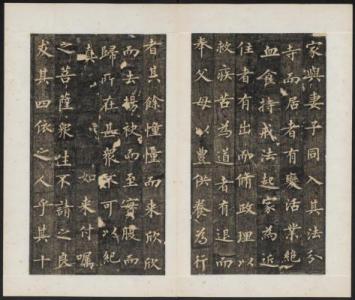 家與妻子同入其法分
寺而居者有變活業絕
血食持戒法起家為近
住者有出而脩政理以
救疾苦為道者有退而
奉父母以豊供養為行
者其餘憧憧而來欣欣
而去揚袂而至實腹而
歸所在甚衆不可以紀
真如來付囑
之菩薩衆生不請之良
友其四依之人乎其十